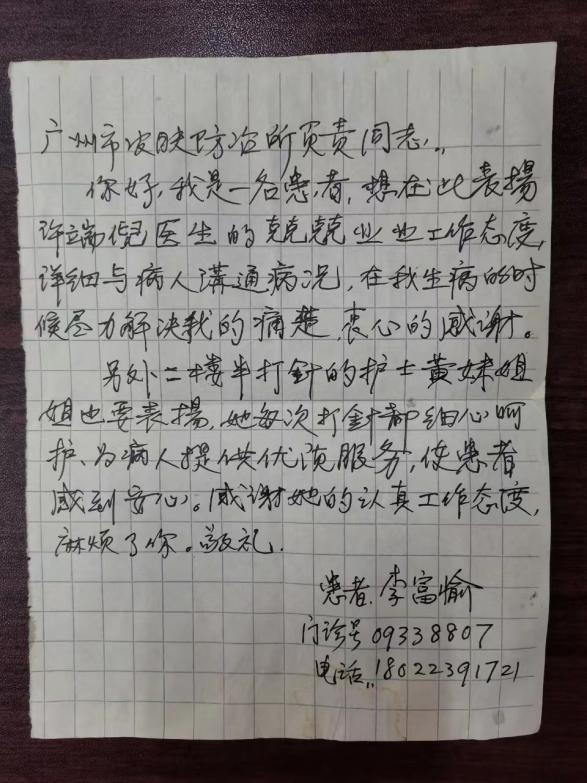 广州市皮肤防治所负责同志:
你好,我是一名患者,想在此表揚
许端倪医生的兢兢業业工作态度,
详细与病人溝通病况,在我生病的时
候尽力解决我的痛楚,衷心的感谢。
另外二楼半打針的护士黄妹姐
姐也要表揚,她每次打針都细心呵
护、为病人提供优质服务,使患者
感到安心。感谢她的认真工作态度,
麻烦了你。敬礼.
患者.李富愉
门诊号09338807
电话:18022391721